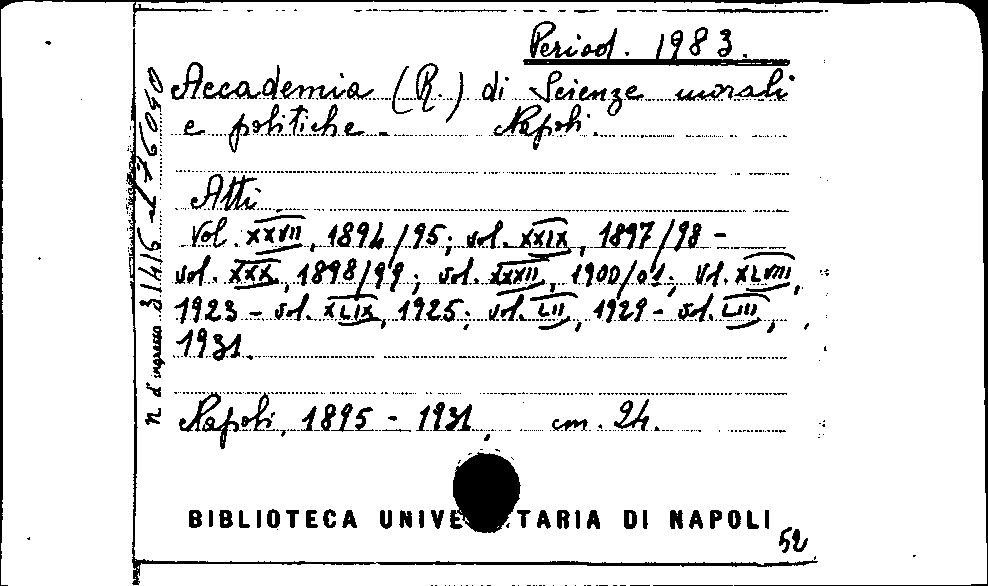 Period. 1983.
Accademia (R.) di Scienze morali
e politiche. Napoli.
Atti
Vol. XXVII, 1894/95; vol. XXIX, 1897/98 -
vol. XXX, 1898/99; vol. XXXII, 1900/01; vol. XLVIII,
1923 - vol. XLIX, 1925; vol. LII, 1929 - vol. LIII,
1931.
Napoli, 1895 - 1931, cm. 24.
BIBLIOTECA UNIVE TARIA DI NAPOLI
52
N. d'ingresso